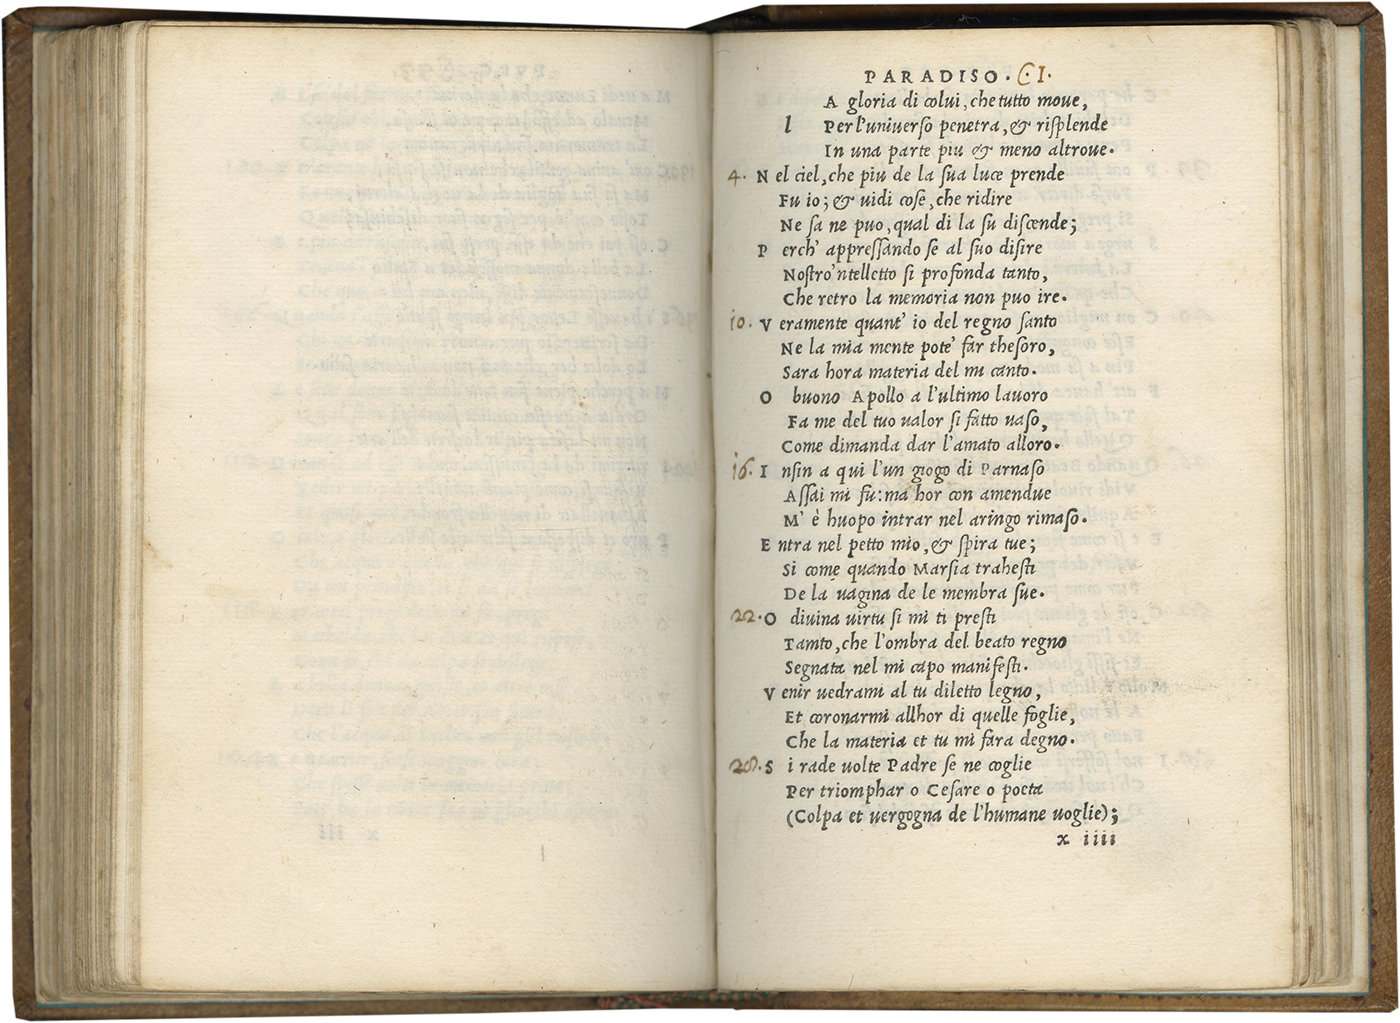 PARADISO. C.I.
A gloria di colui, che tutto moue,
l Per l'uniuerso penetra, & risplende
In una parte piu & meno altroue.
4. N el ciel, che piu de la sua luce prende
Fu io; & uidi cose, che ridire
Ne sa ne puo, qual di la su discende;
P erch' appressando se al suo disire
Nostro'ntelletto si profonda tanto,
Che retro la memoria non puo ire.
10. V eramente quant' io del regno santo
Ne la mia mente pote' far thesoro,
Sara hora materia del mi canto.
O buono Apollo a l'ultimo lauoro
Fa me del tuo ualor si fatto uaso,
Come dimanda dar l'amato alloro.
16. I nsin a qui l'un giogo di Parnaso
Assai mi fu: ma hor con amendue
M' è huopo intrar nel aringo rimaso.
E ntra nel petto mio, & spira tue;
Si come quando Marsia trahesti
De la uagina de le membra sue.
22. O diuina uirtu si mi ti presti
Tamto, che l'ombra del beato regno
Segnata nel mi capo manifesti.
V enir uedrami al tu diletto legno,
Et coronarmi allhor di quelle foglie,
Che la materia et tu mi fara degno.
28. S i rade uolte Padre se ne coglie
Per triomphar o Cesare o poeta
(Colpa et uergogna de l'humane uoglie);
x iiii